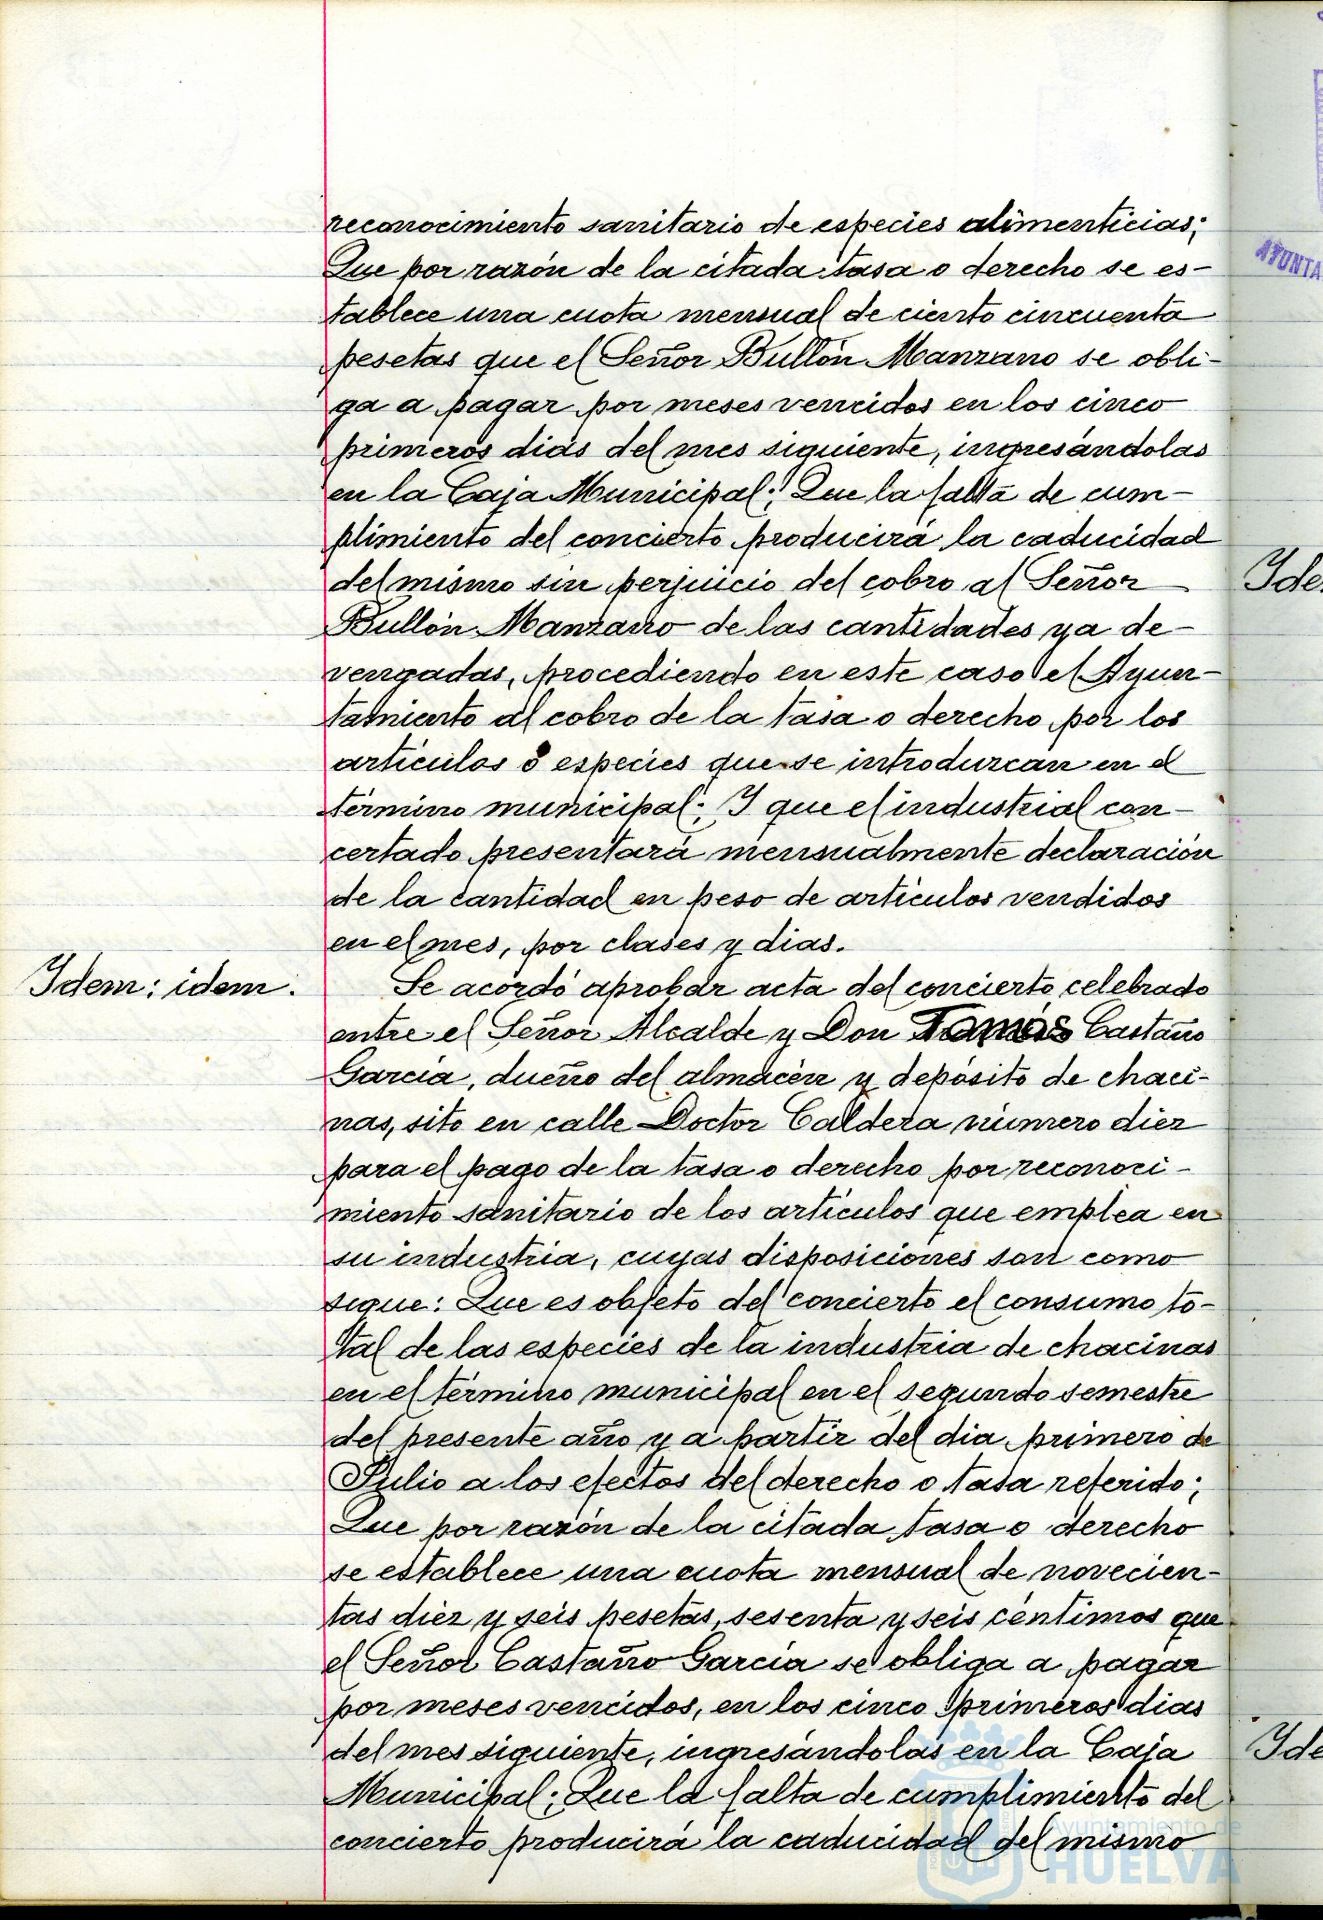 reconocimiento sanitario de especies alimenticias;
Que por razón de la citada tasa o derecho se es-
tablece una cuota mensual de ciento cincuenta
pesetas que el Señor Bullón Manzano se obli-
ga a pagar por meses vencidos en los cinco
primeros dias del mes siguiente, ingresándolas
en la Caja Municipal; Que la falta de cum-
plimiento del concierto producirá la caducidad
del mismo sin perjuicio del cobro al Señor
Bullón Manzano de las cantidades ya de-
vengadas, procediendo en este caso el Ayun-
tamiento al cobro de la tasa o derecho por los
artículos o especies que se introduzcan en el
término municipal; Y que el industrial con-
certado presentará mensualmente declaración
de la cantidad en peso de artículos vendidos
en el mes, por clases y dias.
Idem: idem.
Se acordó aprobar acta del concierto celebrado
entre el Señor Alcalde y Don Tomás Castaño
García, dueño del almacén y depósito de chaci-
nas, sito en calle Doctor Caldera número diez
para el pago de la tasa o derecho por reconoci-
miento sanitario de los artículos que emplea en
su industria, cuyas disposiciones son como
sigue: Que es objeto del concierto el consumo to-
tal de las especies de la industria de chacinas
en el término municipal en el segundo semestre
del presente año y a partir del dia primero de
Julio a los efectos del derecho o tasa referido;
Que por razón de la citada tasa o derecho
se establece una cuota mensual de novecien-
tas diez y seis pesetas, sesenta y seis céntimos que
el Señor Castaño García se obliga a pagar
por meses vencidos, en los cinco primeros dias
del mes siguiente, ingresándolas en la Caja
Municipal; Que la falta de cumplimiento del
concierto producirá la caducidad del mismo
Ayuntamiento de
HUELVA
AYUNTA
Ide
Ide